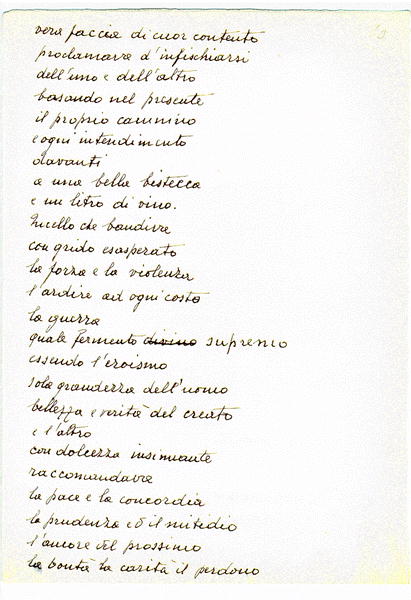 vera faccia di cuor contento
proclamava d'infischiarsi
dell'uno e dell'altro
basando nel presente
il proprio cammino
e ogni intendimento
davanti
a una bella bistecca
e un litro di vino.
Quello che bandiva
con grido esasperato
la forza e la violenza
l'ardire ad ogni costo
la guerra
quale fermento divino supremo
essendo l'eroismo
sola grandezza dell'uomo
bellezza e verità del creato
e l'altro
con dolcezza insinuante
raccomandava
la pace e la concordia
la prudenza ed il
l'amore del prossimo
la bontà la carità il perdono